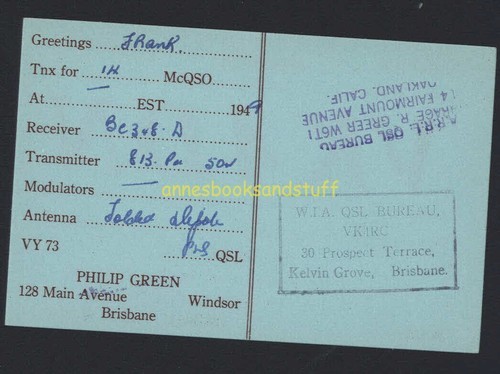 Greetings Frank.
Tnx for 1st McQSO
At EST 1949
Receiver BC348.
Transmitter 813. Pa 50w
Modulators —
annesbooksandstuff
Antenna Folded dipole
VY 73 Pse QSL
PHILIP GREEN
128 Main Avenue Windsor
Brisbane
A.R.R.L. QSL BUREAU
HORACE R. GREER W6TI
414 FAIRMOUNT AVENUE
OAKLAND. CALIF.
W.I.A. QSL BUREAU,
VK4RC
30 Prospect Terrace,
Kelvin Grove, Brisbane.